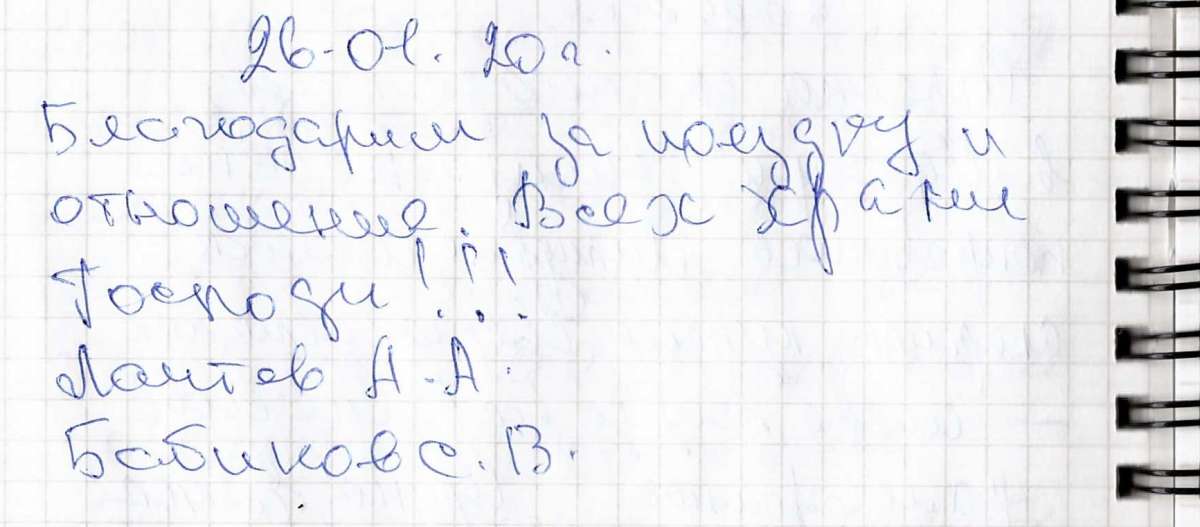 26.01.20г.
Благодарим за поездку и
отношение. Всех храни
Господи!!!
Лаптев А.А.
Бабиков С.В.